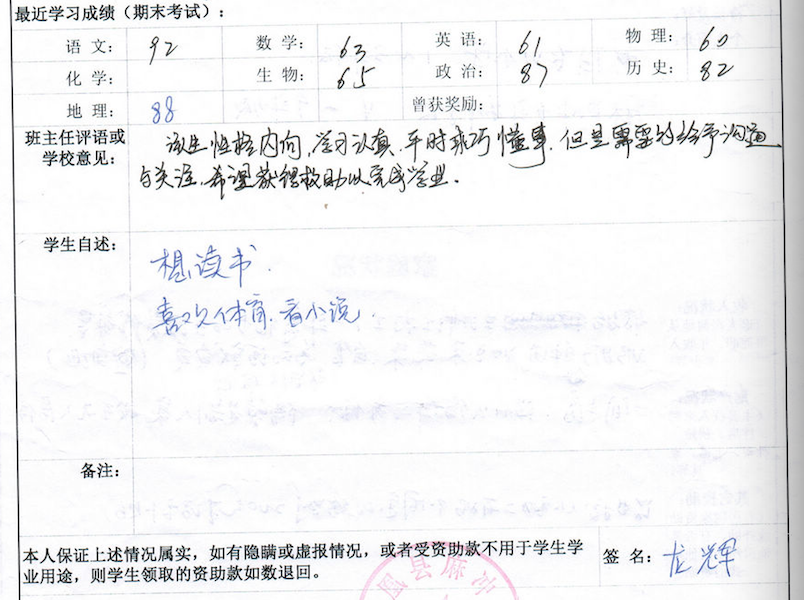 最近学习成绩（期末考试）：
语文： 92 数学： 63 英语： 61 物理： 60
化学： 生物： 65 政治： 87 历史： 82
地理： 88 曾获奖励：
班主任评语或学校意见： 该生性格内向，学习认真，平时乖巧懂事，但是需要给予沟通
与关注，希望获得救助以完成学业。
学生自述：
想读书．
喜欢体育．看小说．
备注：
本人保证上述情况属实，如有隐瞒或虚报情况，或者受资助款不用于学生学
业用途，则学生领取的资助款如数退回。
签名：龙辉
凰县麻冲